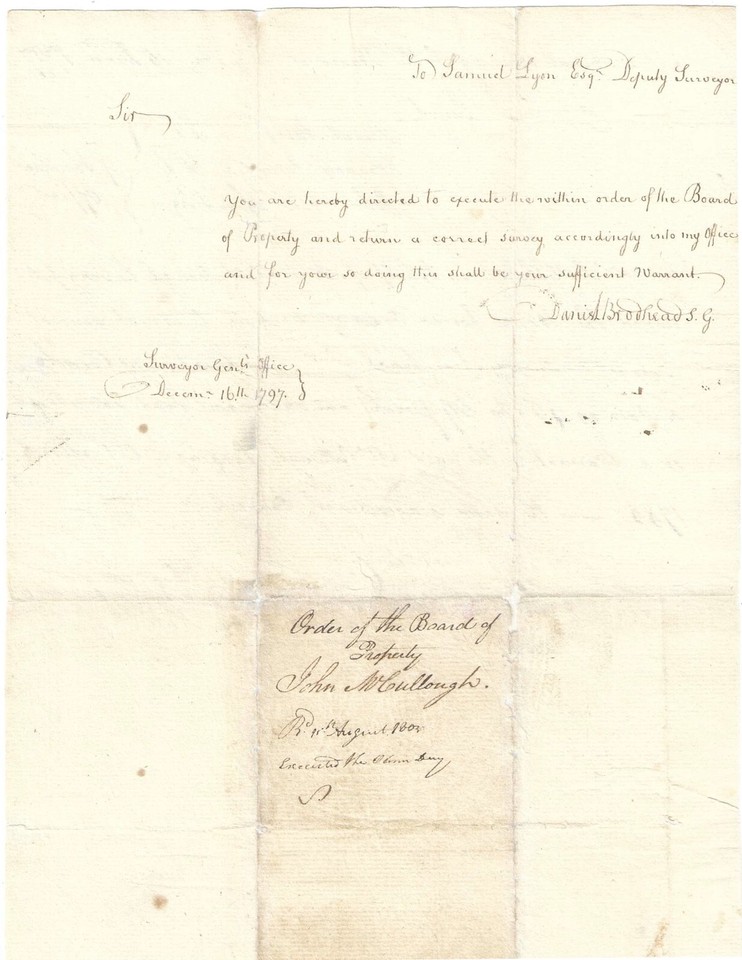 To Samuel Lyon Esqr. Deputy Surveyor
Sir
You are hereby directed to execute the within order of the Board
of Property and return a correct survey accordingly into my Office
and for your so doing this shall be your sufficient Warrant.
Daniel Brodhead S. G.
Surveyor Genls. Office
Decemr. 16th. 1797.
Order of the Board of
Property
John McCullough.
Rd. August
Executed the Same Day